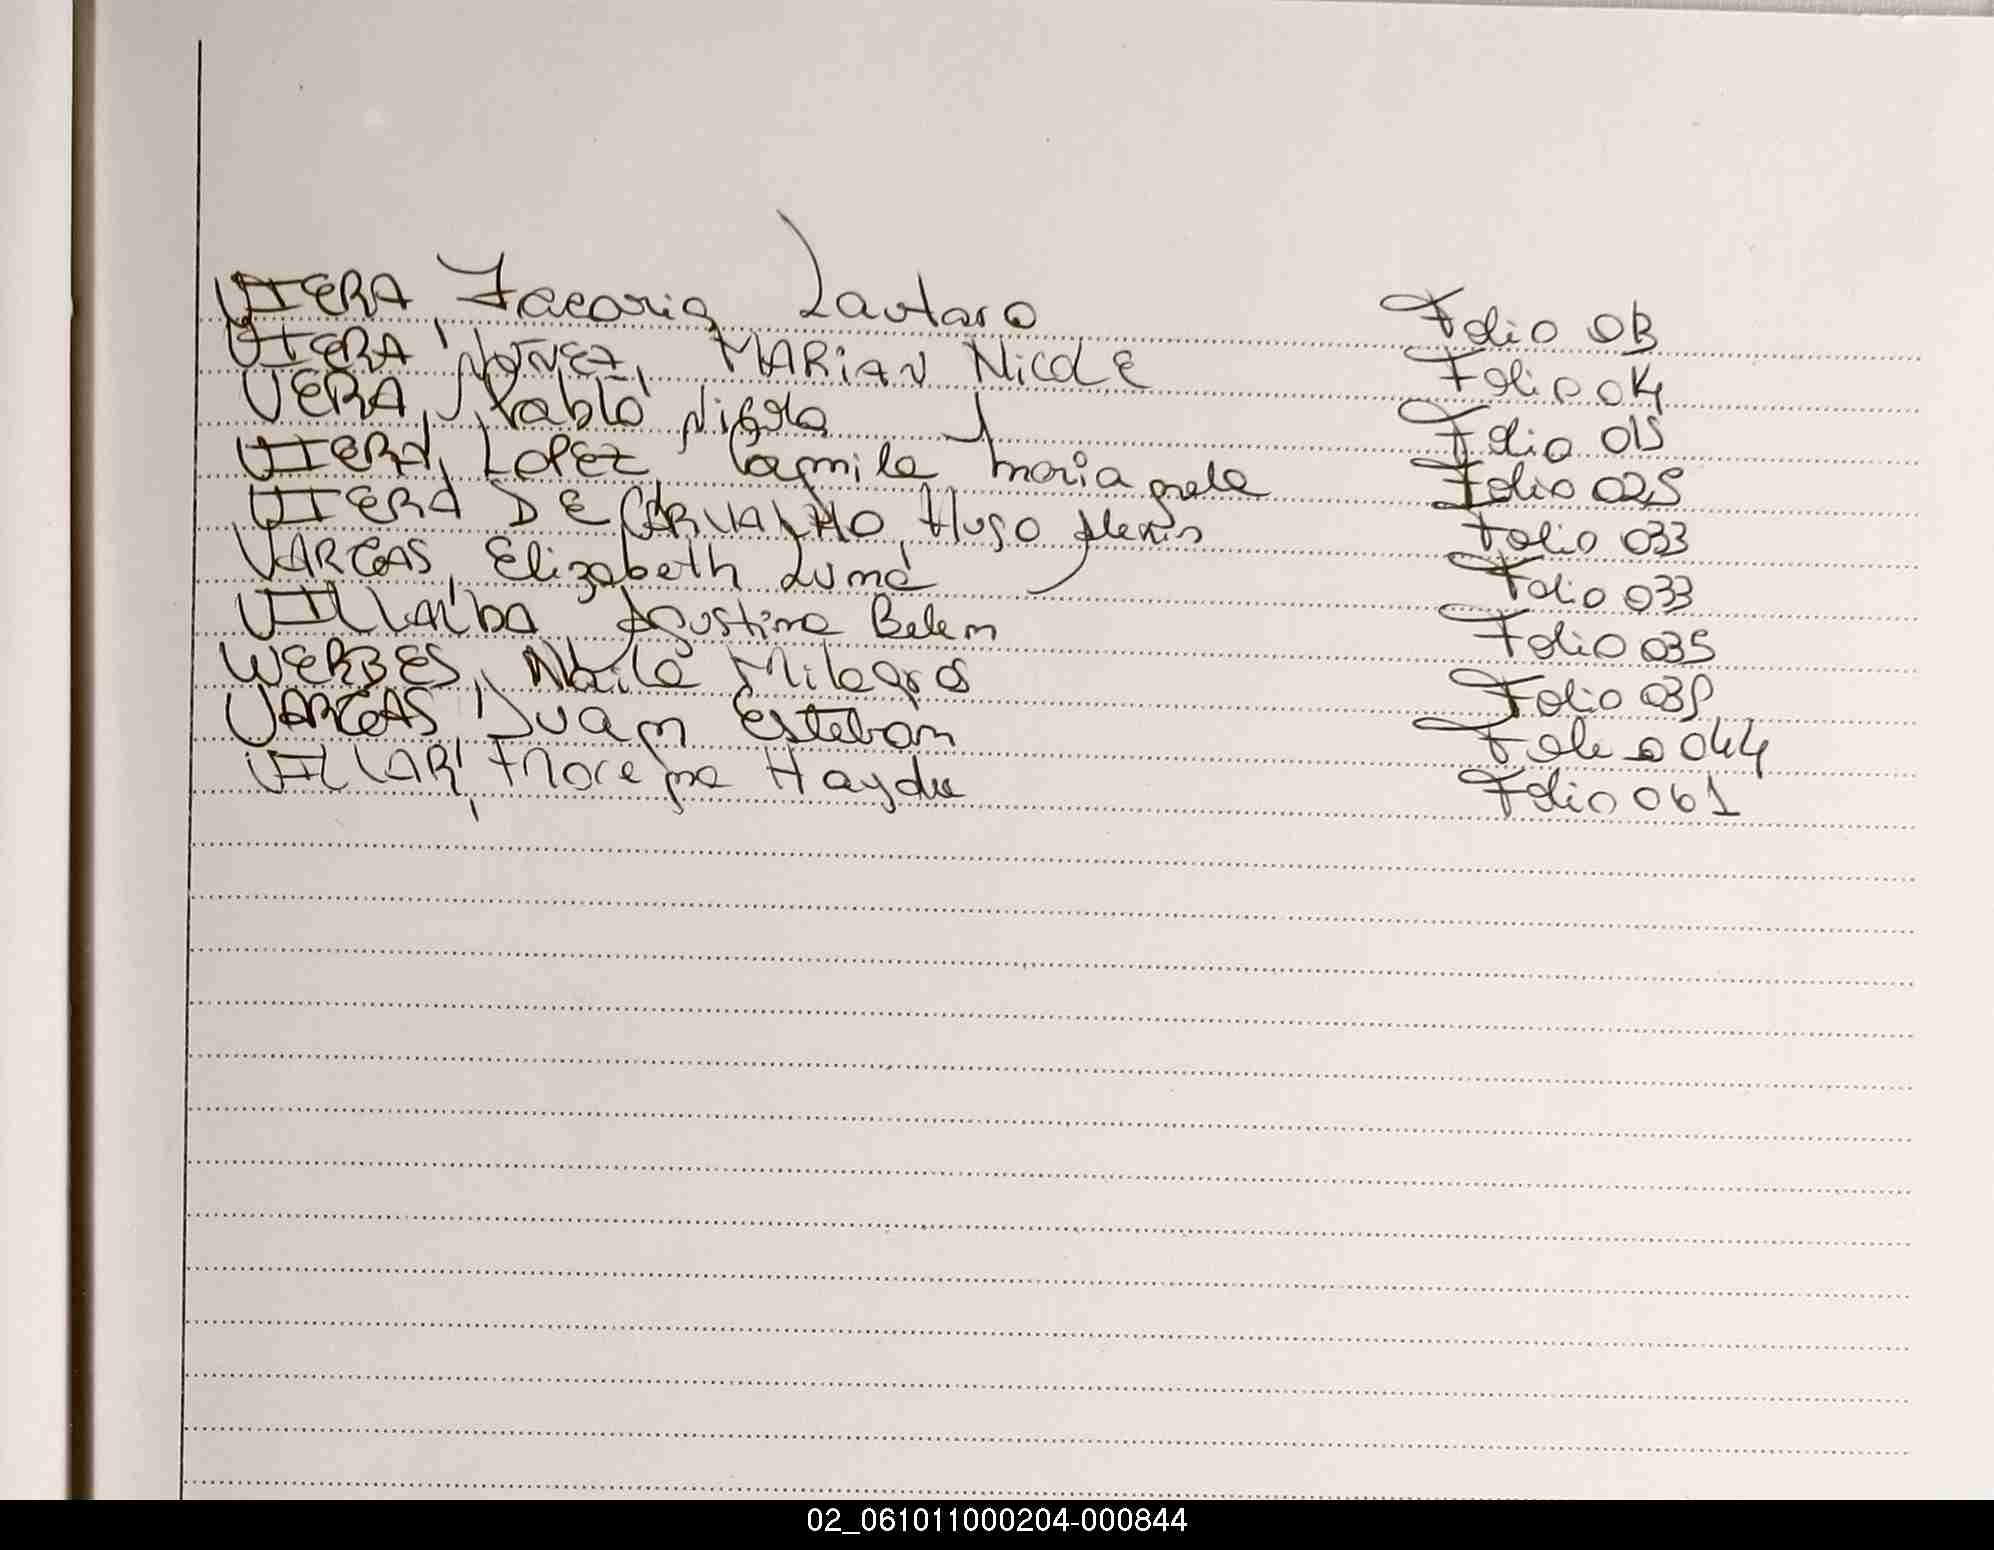 VIERA, Zacaria Lautaro Folio 013
VIERA NUÑEZ, MARIAN NICOLE Folio 014
VERA, Pablo Folio 015
VIERA, LOPEZ Camila Folio 025
VIERA DE CARVALHO, Hugo Alexis Folio 033
VARGAS, Elizabeth Luma Folio 033
VILLALBA Agustina Belem Folio 035
WERBES, Naila Milagros Folio
VARGAS, Juam Esteban Folio 044
VILLAR, Haydee Folio 061
02_061011000204-000844